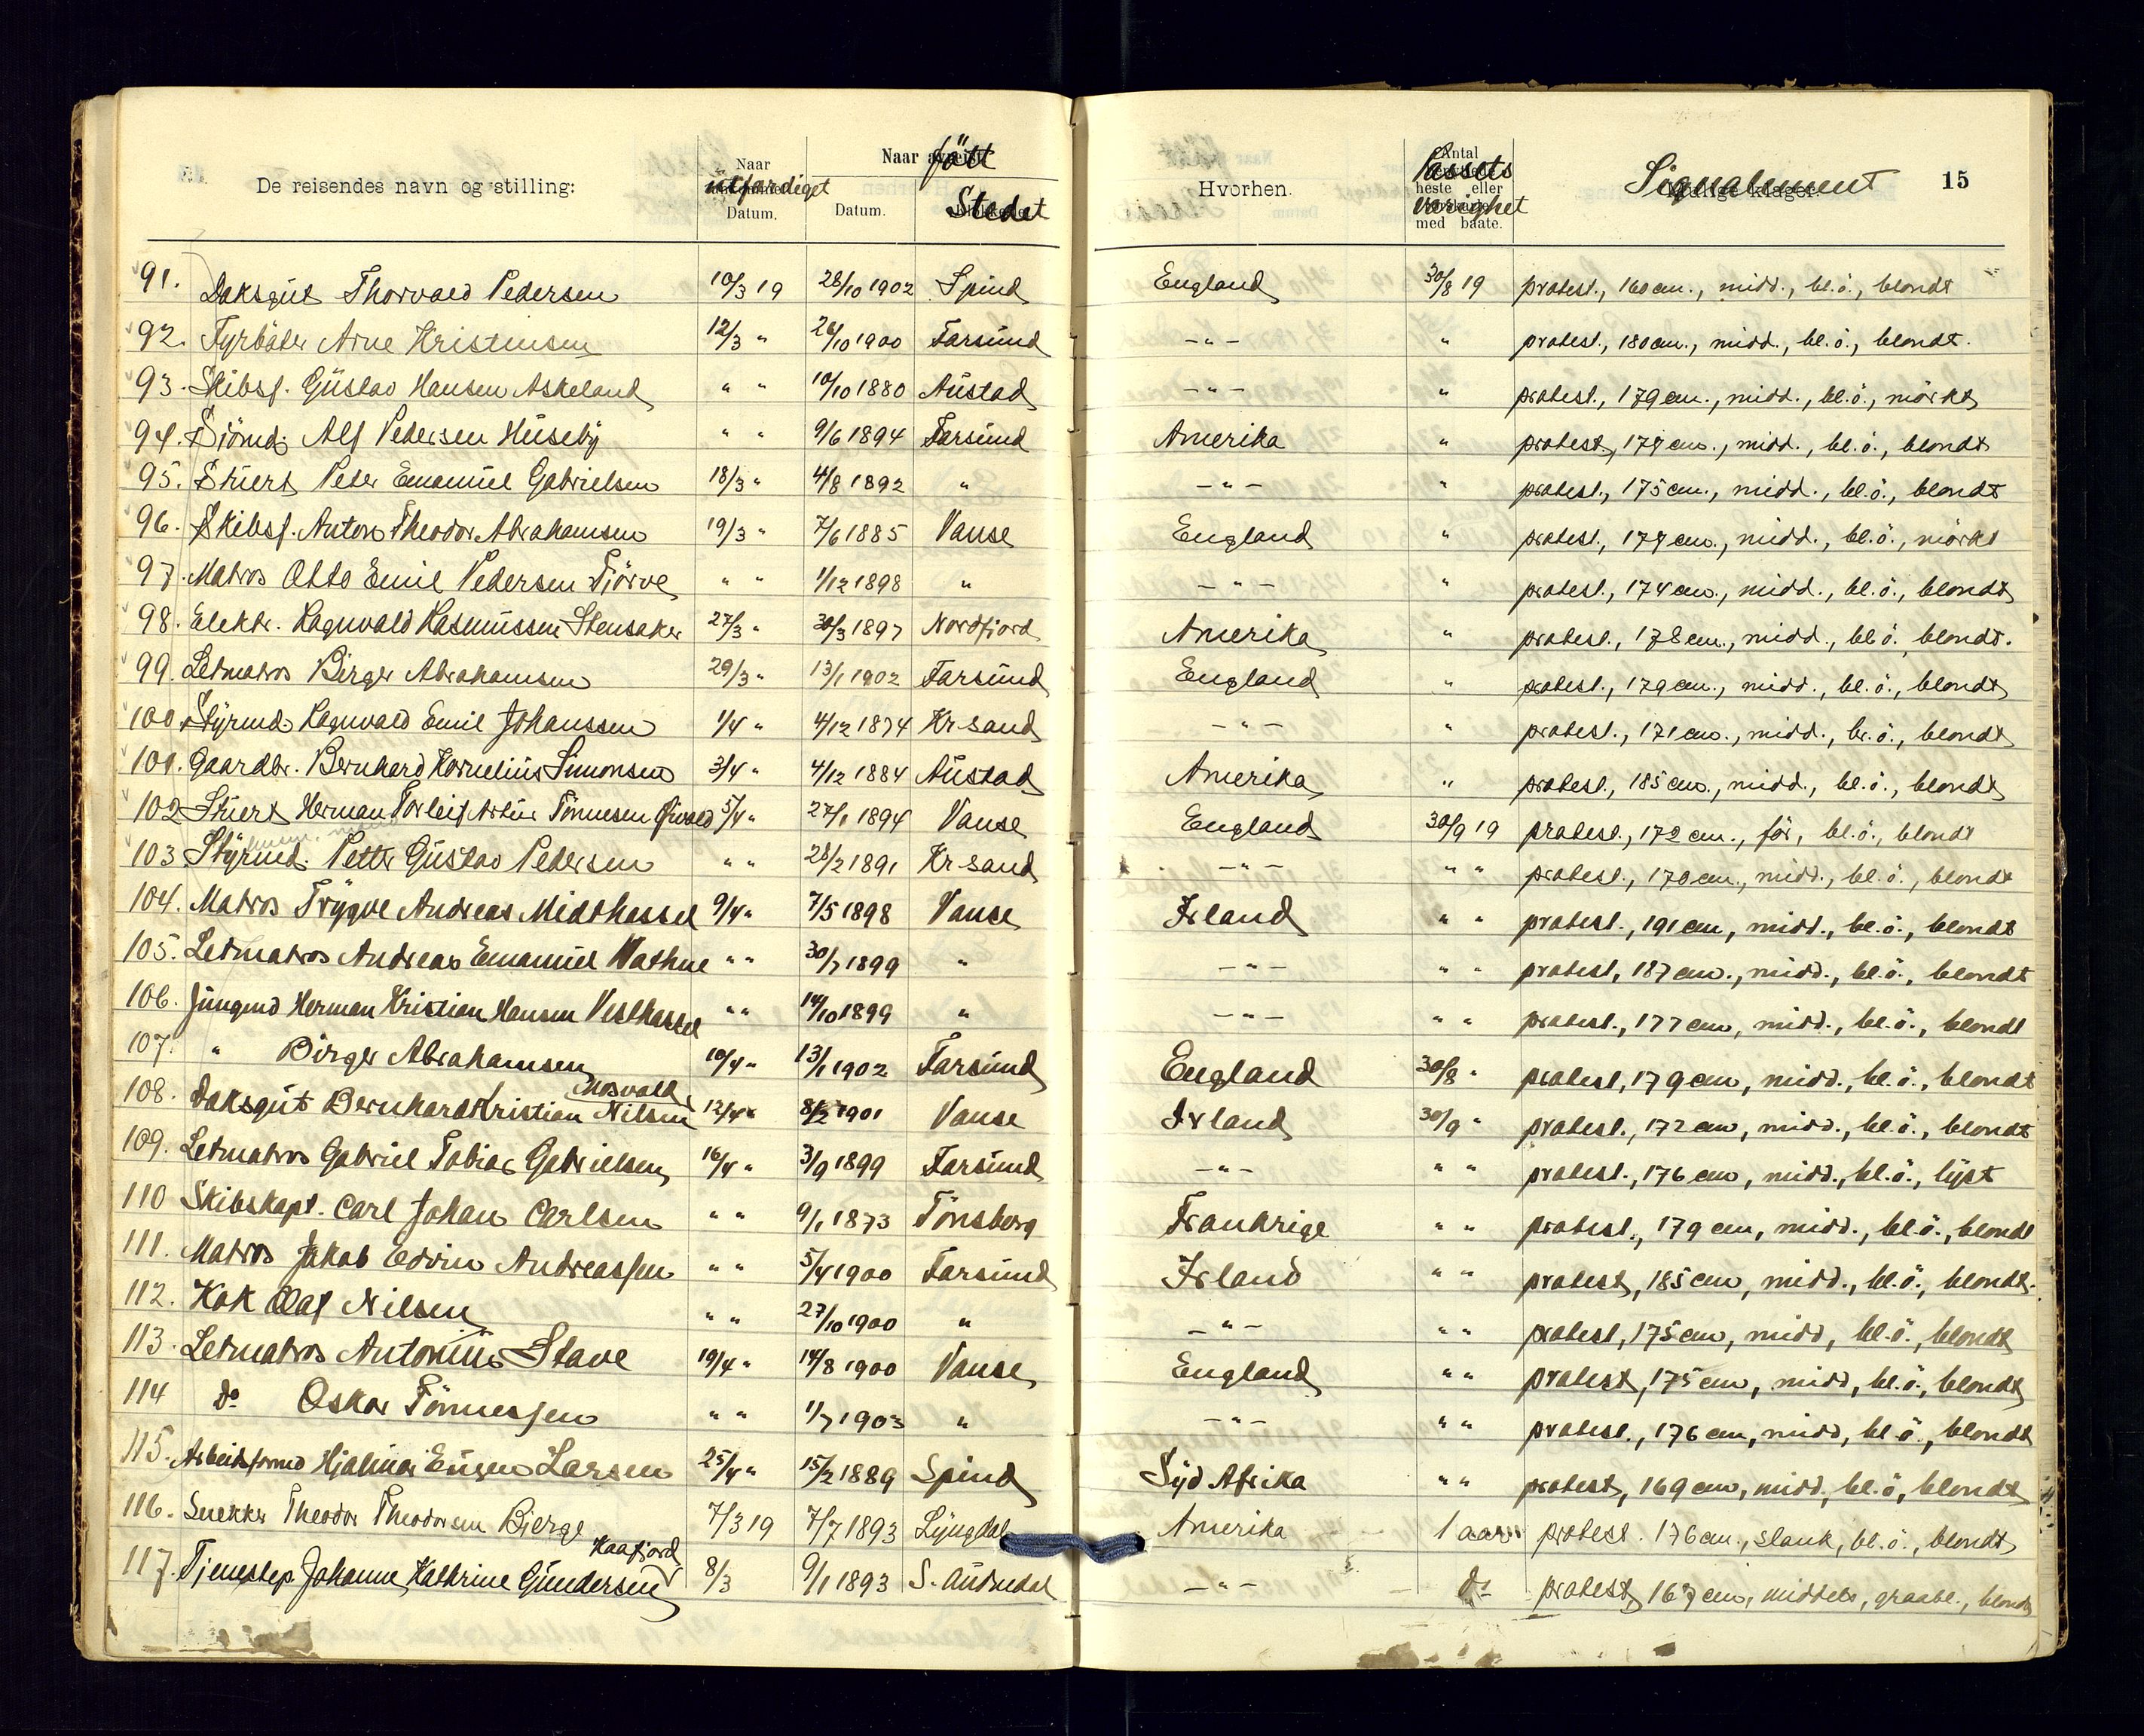 De reisendes navn og stilling: Naar utfærdiget Datum. Naar født Datum. Stedet Hvorhen. Antal Passets heste eller varighet med baate. Signalement 15
91. Daksgut Thorvald Pedersen 10/3 19 28/10 1902 Spind England 30/8 19 protest., 160 cm., midd., bl.ö., blondt
92. Fyrböter Arne Kristensen 12/3 " 26/10 1900 Farsund -"- " protest., 180 cm., midd., bl.ö., blondt.
93. Skibsf. Gustav Hansen Askeland " " 10/10 1880 Austad -"- " protest., 179 cm., midd., bl.ö., mörkt
94. Sjömd. Alf Pedersen Huseby " " 9/6 1894 Farsund Amerika " protest., 179 cm., midd., bl.ö., blondt
95. Stuert Peter Emanuel Gabrielsen 18/3 " 4/8 1892 " -"- " protest., 175 cm., midd., bl.ö., blondt
96. Skibsf. Anton Theodor Abrahamsen 19/3 " 7/6 1885 Vanse England " protest., 179 cm., midd., bl.ö., mörkt
97. Matros Otto Emil Pedersen Tjörve " " 1/12 1898 " -"- " protest., 174 cm., midd., bl.ö., blondt
98. Elektr. Ragnvald Rasmussen Stensaker 27/3 " 30/3 1897 Nordfjord Amerika " protest., 178 cm., midd., bl.ö. blondt.
99. Letmatros Birger Abrahamsen 29/3 " 13/1 1902 Farsund England " protest., 179 cm., midd., bl.ö., blondt
100. Styrmd. Ragnvald Emil Johanssen 1/4 " 4/12 1874 Kr-sand -"- " protest., 171 cm., midd., br.ö., blondt
101. Gaardbr. Bernhard Kornelius Simonsen 3/4 " 4/12 1884 Austad Amerika " protest., 185 cm., midd., bl.ö., blondt
102 Stuert Herman Torleif Artur Tönnesen 5/4 " 27/1 1894 Vanse England 30/9 19 protest., 172 cm., för, bl.ö., blondt
103. Styrmd. Petter Gustav Pedersen " " 28/2 1891 Kr-sand -"- " " protest., 170 cm., midd., bl.ö., blondt
104. Matros Trygve Andreas Midthassel 9/4 " 7/5 1898 Vanse Irland " " protest., 191 cm, midd., bl.ö., blondt
105. Letmatros Andreas Emanuel Vathne " " 30/7 1899 " -"- " " protest, 187 cm., midd., bl.ö., blondt
106. Jungmd Herman Kristian Hansen Vesthassel " " 14/10 1899 " -"- " " protest., 177 cm, midd., bl.ö., blondt
107. " Birger Abrahamsen 10/4 " 13/1 1902 Farsund England 30/8 " protest, 179 cm, midd., bl.ö., blondt
108. Daksgut Bernhard Kristian Nilsen Mosvold 12/4 " 8/2 1901 Vanse Irland 30/9 " protest., 172 cm, midd., bl.ö., blondt
109. Letmatros Gabriel Tobias Gabrielsen 16/4 " 3/9 1899 Farsund -"- " " protest., 176 cm, midd., bl.ö., lyst
110 Skibskapt. Carl Johan Carlsen " " 9/1 1873 Tönsberg Frankrige " " protest., 179 cm, midd., bl.ö., blondt
111. Matros Jakob Edvin Andreassen " " 5/4 1900 Farsund Irland " " protest, 185 cm, midd., bl.ö., blondt.
112. Kok Olaf Nilsen " " 27/10 1900 " -"- " " protest, 175 cm, midd, bl.ö., blondt
113. Letmatros Antonius Stave 19/4 " 14/8 1900 Vanse England " " protest, 175 cm, midd, bl.ö., blondt
114 do Oskar Tönnessen " " 1/7 1903 " -"- " " protest., 176 cm, midd, bl.ö., blondt
115. Arbeidsformd Hjalmar Eugen Larsen 25/4 " 15/2 1889 Spind Syd Afrika " " protest, 169 cm, midd, bl.ö, blondt
116. Snekker Theodor Theodorsen Bjerge 7/3 19 7/7 1893 Lyngdal Amerika 1 aar protest. 176 cm., slank, bl.ö., blondt
117. Tjenestep Johanne Kathrine Gundersen Kaafjord 8/3 9/1 1893 S. Audnedal -"- do protest, 167 cm, middels, graabl., blondt